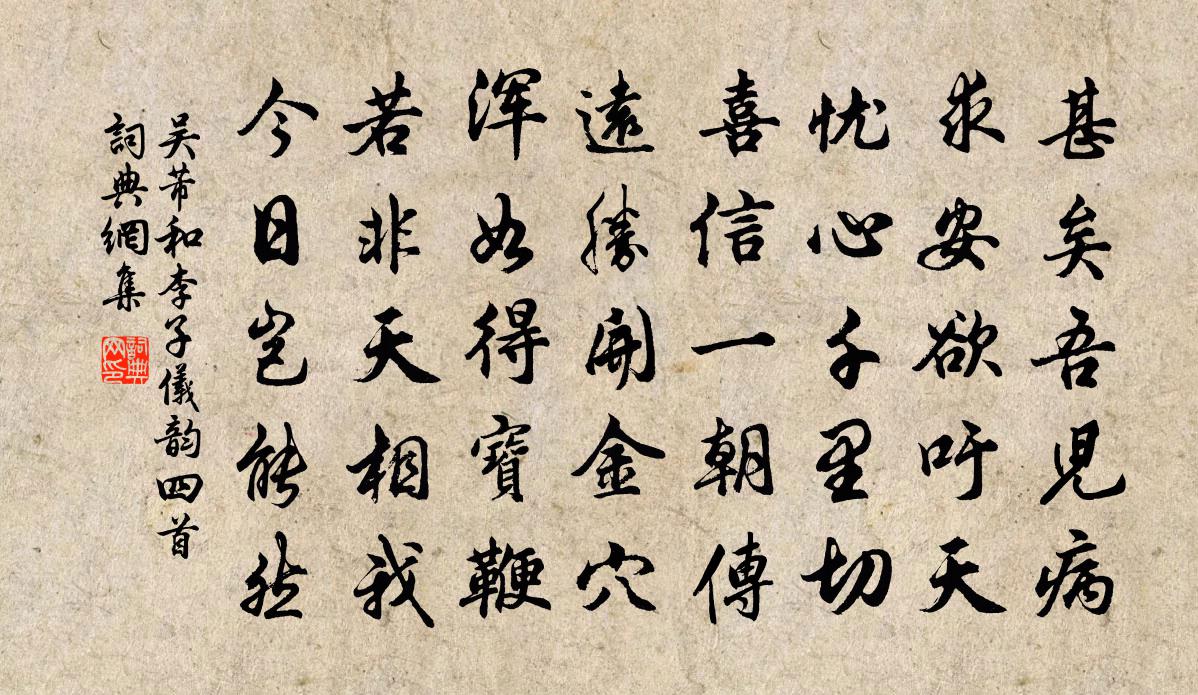 甚矣吾児病
求安欲吁天
忧心千里切
喜信一朝傳
遠勝開金穴
浑如得寶鞭
若非天相我
今日岂能然
吴芾和李子儀韵四首
詞典網集
詞典网印